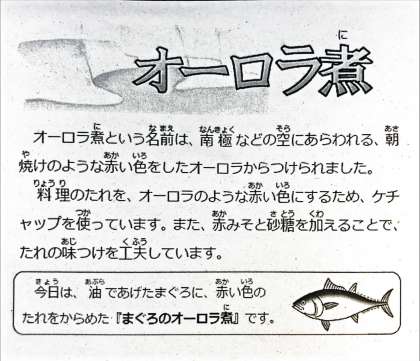 オーロラ煮
オーロラ煮という名前は、南極などの空にあらわれる、朝
焼けのような赤い色をしたオーロラからつけられました。
料理のたれを、オーロラのような赤い色にするため、ケチ
ャップを使っています。また、赤みそと砂糖を加えることで、
たれの味つけを工夫しています。
今日は、油であげたまぐろに、赤い色の
たれをからめた『まぐろのオーロラ煮』です。